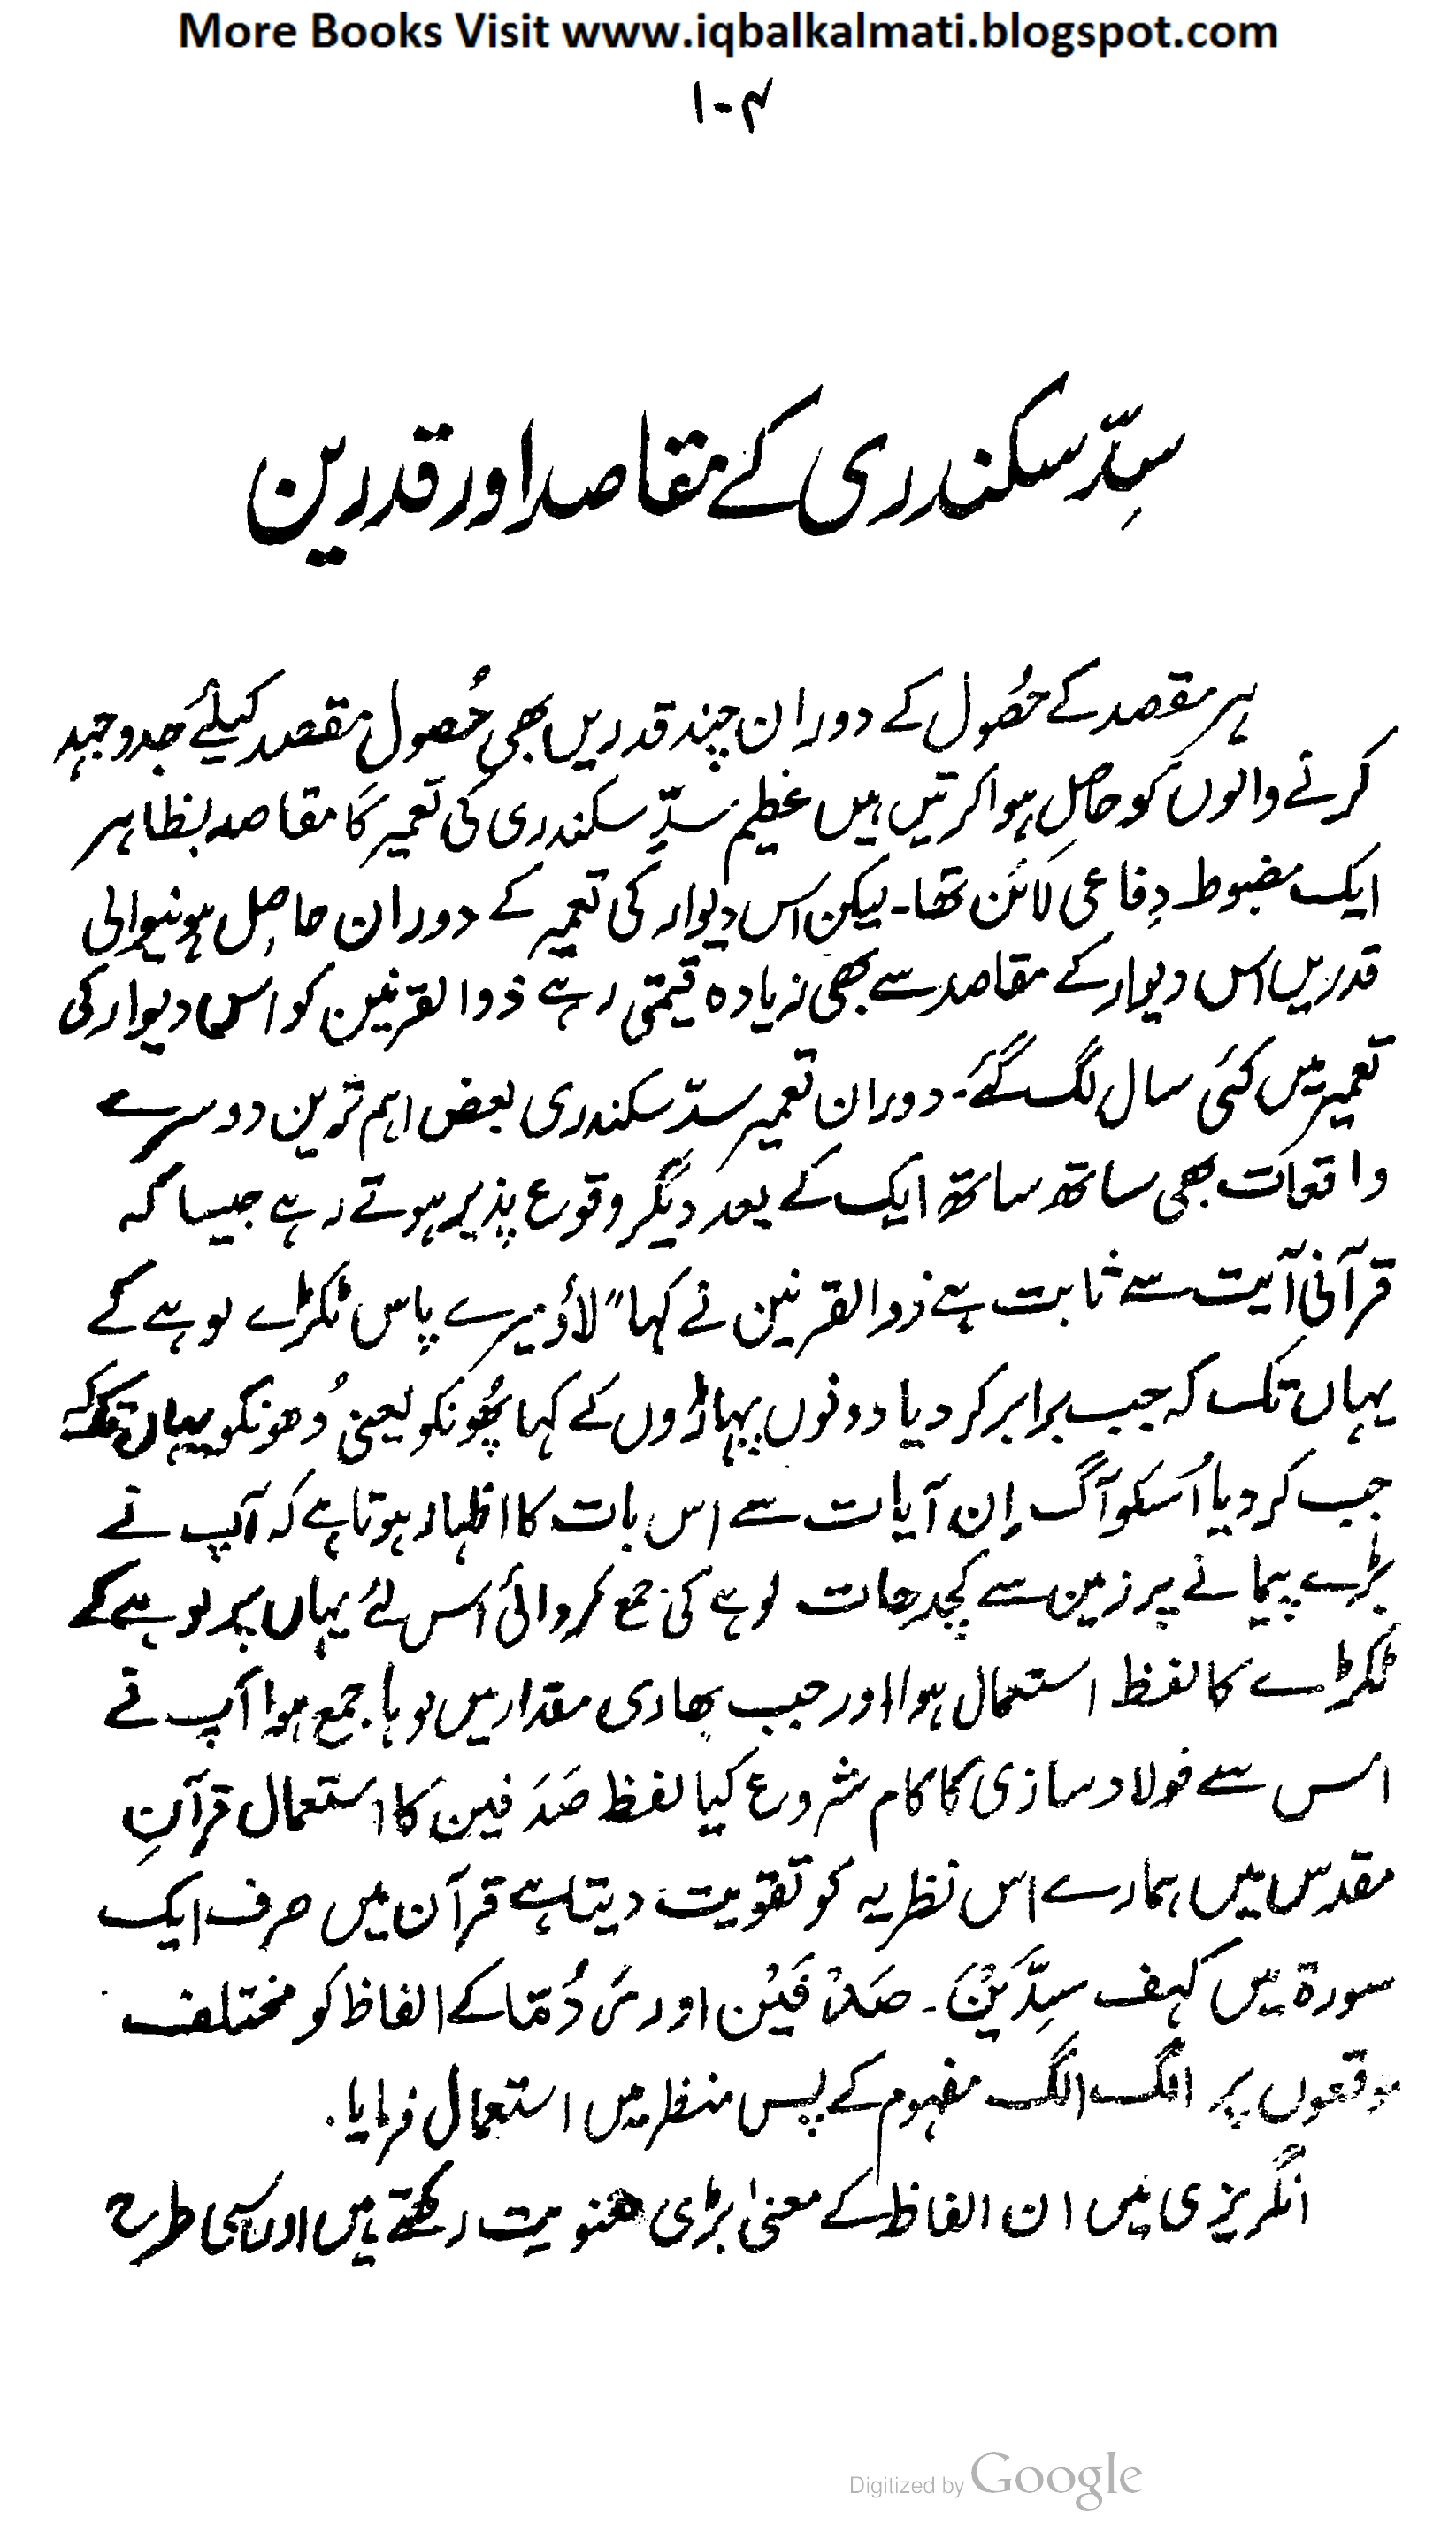 More Books Visit www.iqbalkalmati.blogspot.com
۱۰۴
سِدّ سکندری کے مقاصد اور قدریں
ہر مقصد کے حصُول کے دوران چند قدریں بھی حُصول مقصد کیلئے جدوجہد
کرنے والوں کو حاصِل ہوا کرتیں ہیں عظیم سدِّ سکندری کی تعمیر کا مقاصد بظاہر
ایک مضبوط دِفاعی لائن تھا۔ لیکن اس دیوار کی تعمیر کے دوران حاصِل ہونیوالی
قدریں اس دیوار کے مقاصد سے بھی زیادہ قیمتی رہے ذوالقرنین کو اس دیوار کی
تعمیر میں کئی سال لگ گئے۔ دوران تعمیر سدّ سکندری بعض اہم ترین دوسرے
واقعات بھی ساتھ ساتھ ایک کے بعد دیگر وقوع پذیر ہوتے رہے جیسا کہ
قرآنی آیت سے ثابت ہے ذوالقرنین نے کہا " لاؤ میرے پاس ٹکڑے لوہے کے
یہاں تک کہ جب برابر کر دیا دونوں پہاڑوں کے کہا پھُونکو یعنی دُھونکو یہاں تک کہ
جب کر دیا اُسکو آگ اِن آیات سے اس بات کا اظہار ہوتا ہے کہ آپ نے
بڑے پیمانے پر زمین سے کچدھات لوہے کی جمع کروائی اس لئے یہاں پر لوہے کے
ٹکڑے کا لفظ استعمال ہوا اور جب بھاری مقدار میں لوہا جمع ہوا آپ نے
اس سے فولاد سازی کا کام شروع کیا لفظ صَدَفین کا استعمال قرآنِ
مقدس میں ہمارے اس نظریہ کو تقویت دیتا ہے قرآن میں صرف ایک
سورۃ میں کہف سِدَّیْنَ۔ صَدَفَیْن اور رَدُمّا کے الفاظ کو مختلف
موقعوں پر الگ الگ مفہوم کے پس منظر میں استعمال فرمایا۔
انگریزی میں ان الفاظ کے معنیٰ بڑی معنویت رکھتے ہیں اور اسی طرح
Digitized by Google